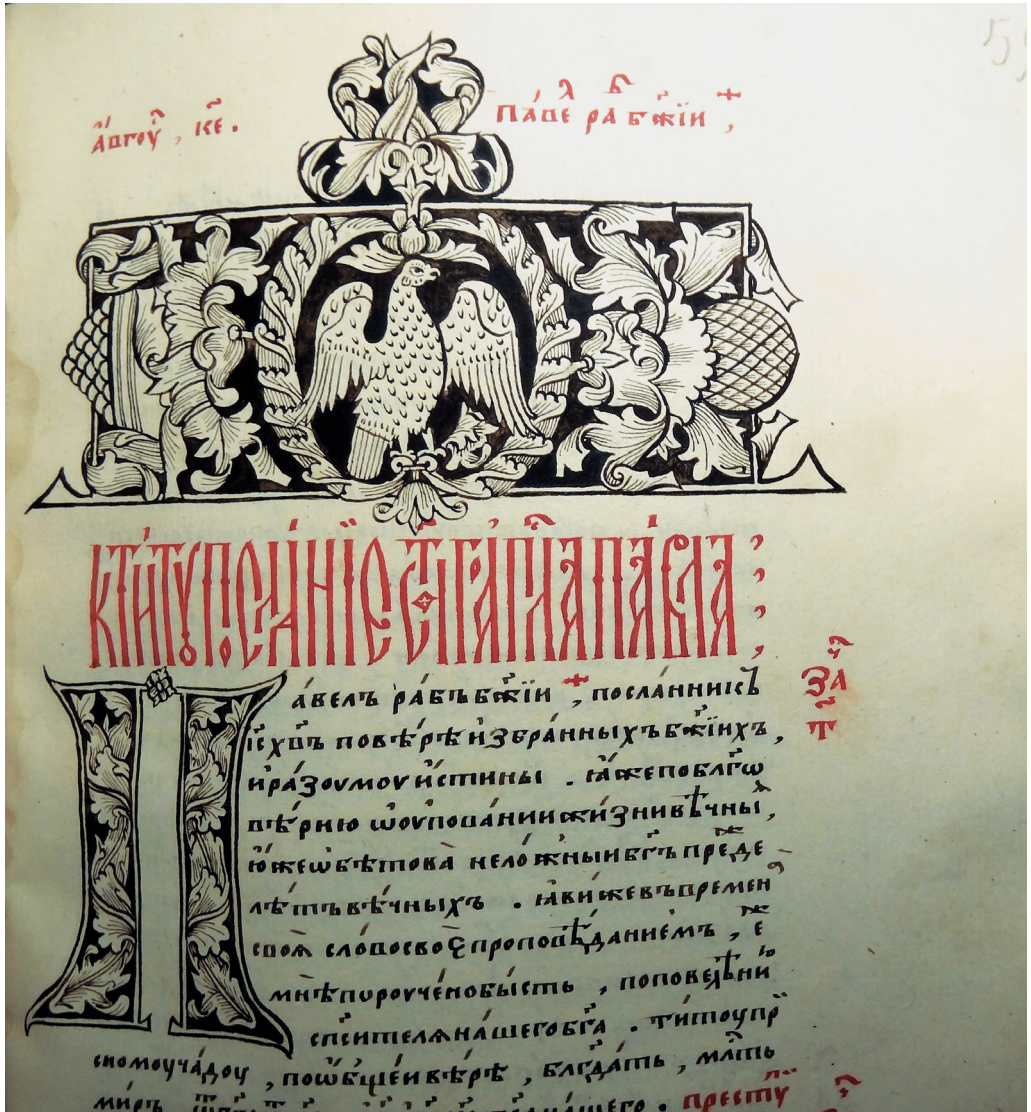 а҆́вгоу҃ , к҃е .
Па́ве л ра б б ж҃їи ,
К ти́ту посла́нїе ст҃а́гѡ ап҃ла па́вла
Па́велъ ра́бъ бж҃їи , посла́нникъ
і҆с҃ хв҃ъ по вѣ́рѣ и҆збра́нныхъ бж҃їихъ ,
и ра́зоумоу и҆́стины . ꙗ҆́же по блг҃ѡ
вѣ́рїю ѡ оу҆пова́нии жи́зни вѣ́чныѧ ,
ю҆́же ѡ҆бѣтова̀ нело́жныи бг҃ъ пре́жде
лѣ́тъ вѣ́чныхъ . ꙗ҆ви́ же въ времена
своѧ̀ сло́во своѐ проповѣ́данїемъ , є҆́же
мнѣ̀ пороуче́но бы́сть , по повелѣ́нїю
сп҃си́телѧ на́шего бг҃а . ти́тоу при
сномоу ча́доу , по ѡ҆́бщеи вѣ́рѣ , блг҃да́ть , мл҃ть
ми́ръ
на́шего . престу
За҃
т҃